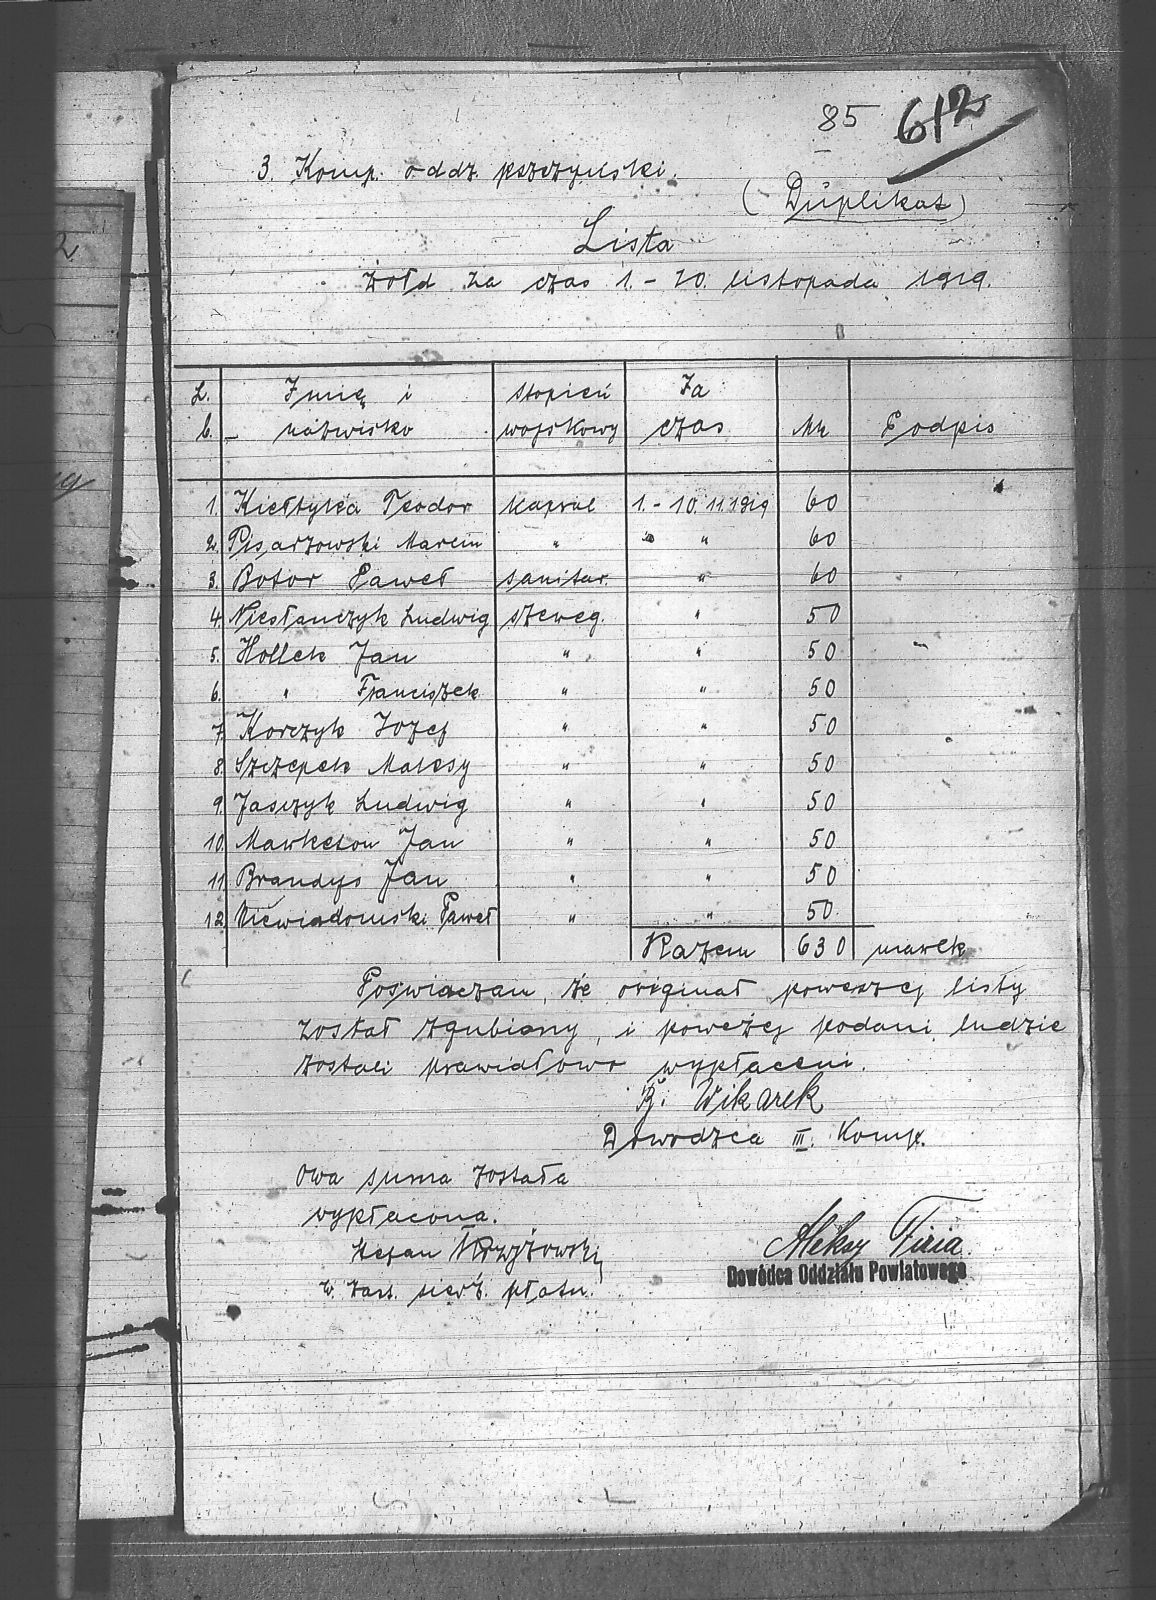 85 612
3. Komp. oddz. pszczyński.
(Duplikat)
Lista
żołd za czas 1. - 10. listopada 1919.
L. Imię i stopień Za
b. nazwisko wojskowy czas Mk Podpis
1. Kiełtyka Teodor kapral 1. - 10. 11. 1919 60
2. Pisarzowski Marcin " " 60
3. Botor Paweł sanitar. " 60
4. Niesłanczyk Ludwig szereg. " 50
5. Hollek Jan " " 50
6. " Franciszek " " 50
7. Korczyk Jozef " " 50
8. Szczepek Malesy " " 50
9. Jasczyk Ludwig " " 50
10. Markefon Jan " " 50
11. Brandys Jan " " 50
12. Niewiadomski Paweł " " 50
Razem 630 marek
Poświaczam, że originał poweszej listy
został zgubiony, i poweżej podani ludzie
zostali prawidłowo wypłaceni.
Wikarek
Dowodzca III. Komp.
Owa suma została
wypłacona.
Stefan Krzyżowski
w zast. sierż. płatn.
Aleksy Firia.
Dowódca Oddziału Powiatowego